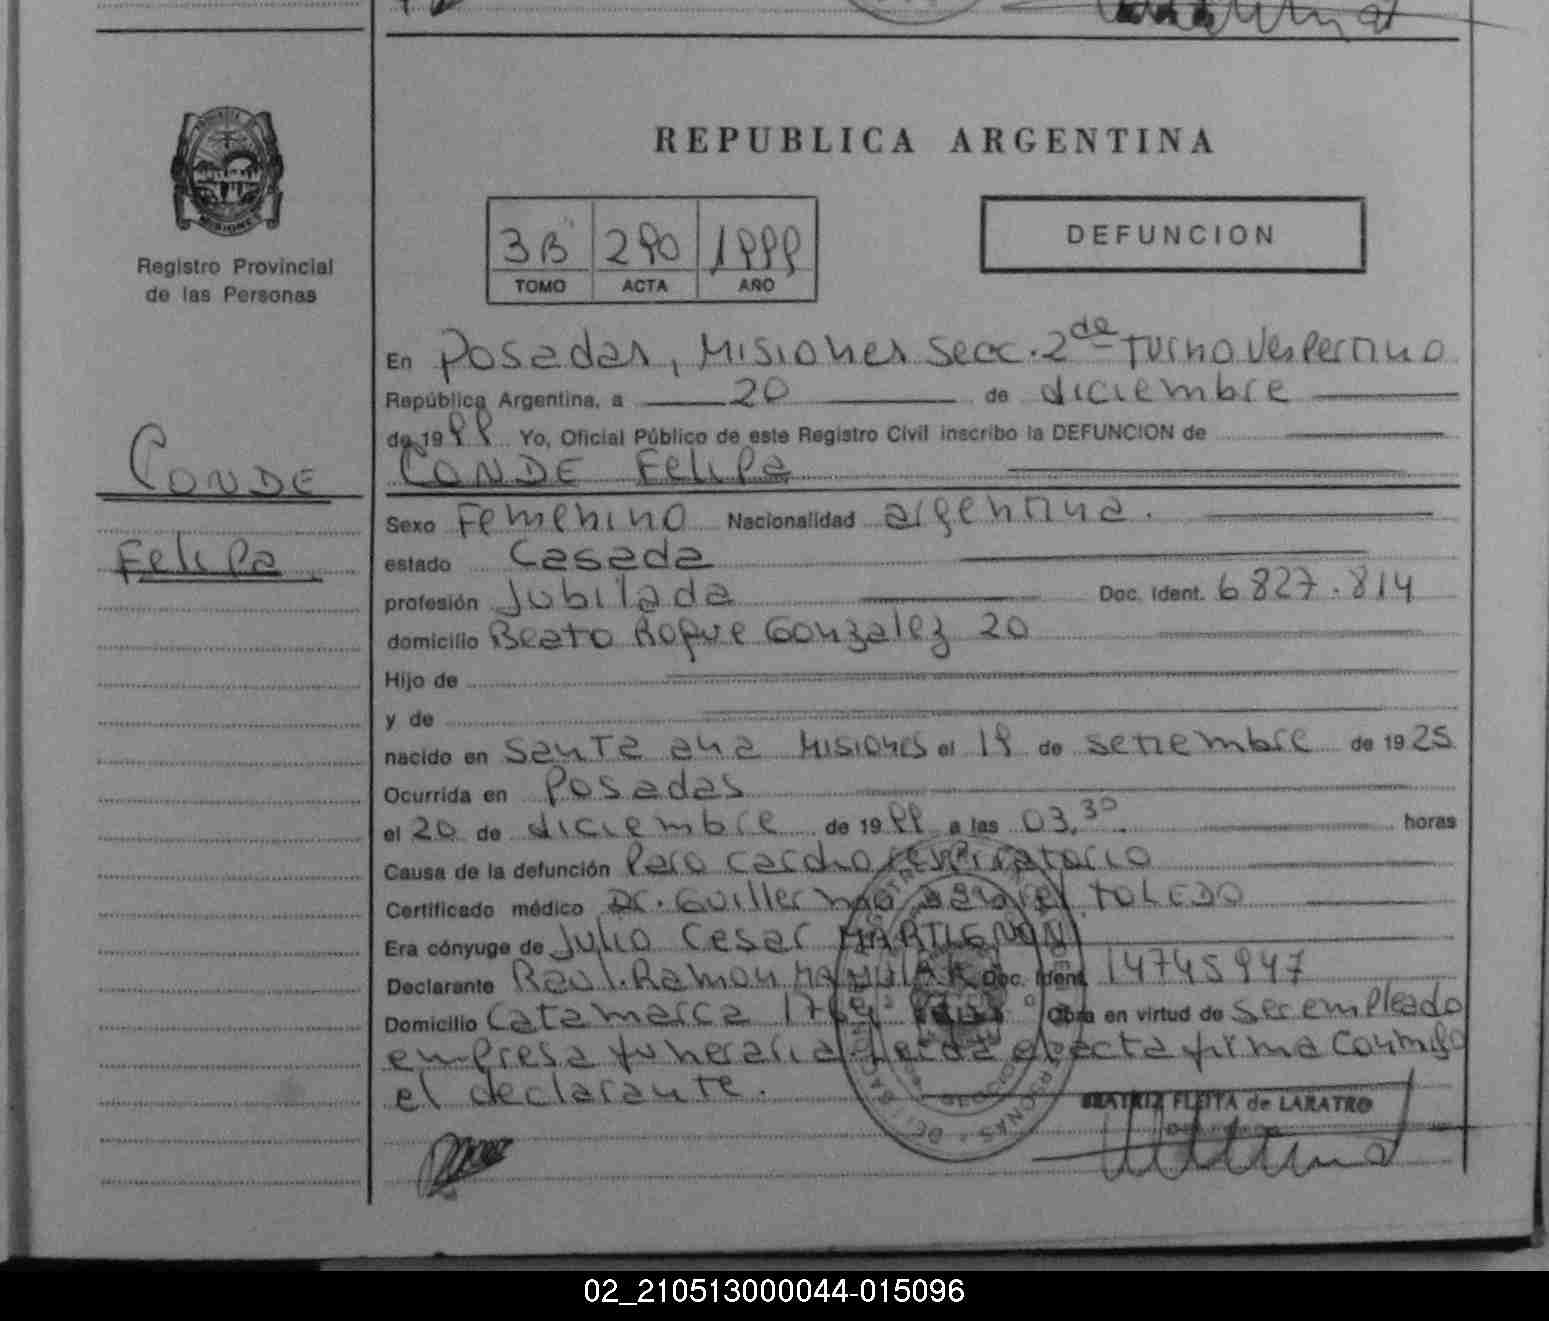 REPUBLICA ARGENTINA
MISIONES
Registro Provincial
de las Personas
3B 290 1999
TOMO ACTA AÑO
DEFUNCION
En Posadas, Misiones Secc. 2da Turno Vespertino
República Argentina, a 20 de diciembre
de 1999 Yo, Oficial Público de este Registro Civil inscribo la DEFUNCION de
CONDE Felipa
CONDE
Felipa
Sexo Femenino Nacionalidad argentina.
estado Casada
profesión Jubilada Doc. Ident. 6827.814
domicilio Beato Roque Gonzalez 20
Hijo de
y de
nacido en Santa ana Misiones el 19 de setiembre de 1925
Ocurrida en Posadas
el 20 de diciembre de 1999 a las 03,30 horas
Causa de la defunción Paro cardio respiratorio
Certificado médico Dr. Guillermo TOLEDO
Era cónyuge de Julio Cesar
Declarante Raul Ramon Doc. Ident. 14745947
Domicilio Catamarca Obra en virtud de ser empleado
empresa funeraria Leida el acta firma conmigo
el declarante.
BEATRIZ FLEITA de LARATRO
02_210513000044-015096